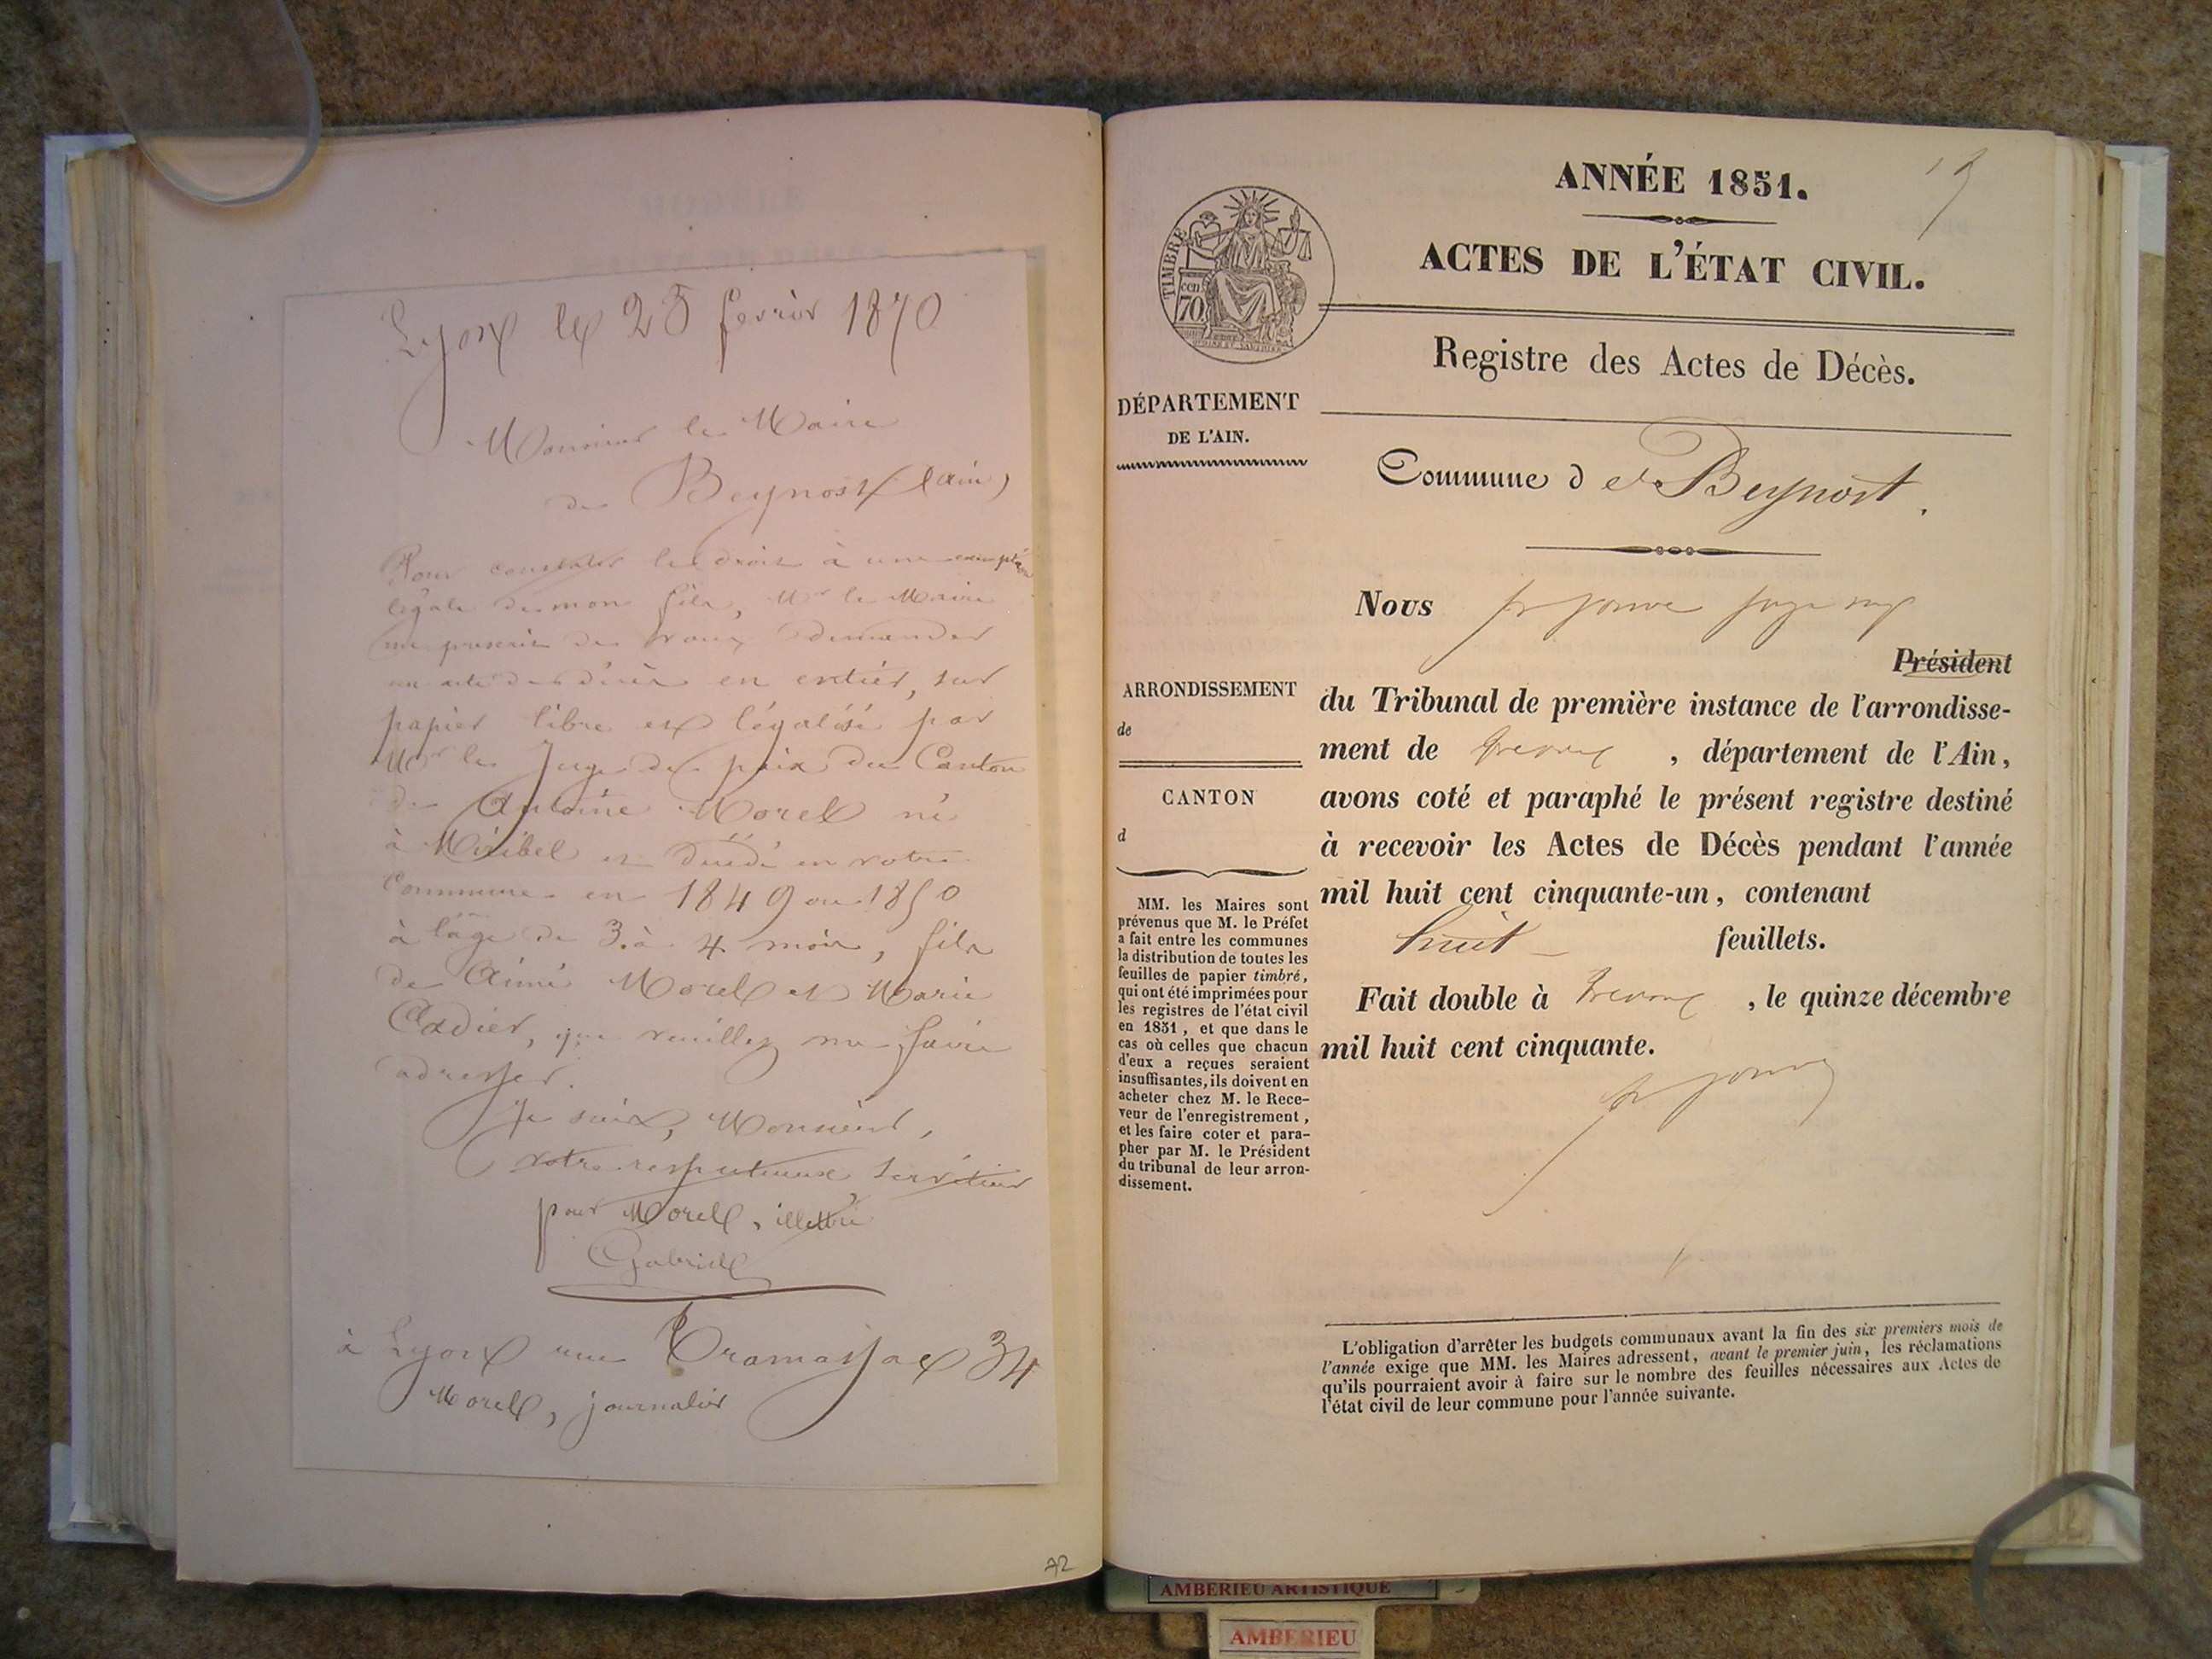 Lyon le 25 fevrier 1870
Monsieur le Maire
de Beynost (Ain)
Pour constater les droits à une exemption
légale de mon fils, Mr le Maire
me prescrit de vous demander
un acte de décès en entier, sur
papier libre et légalisé par
Mr le Juge de paix du Canton
de Antoine Morel né
à Miribel et décédé en votre
Commune en 1849 ou 1850
à l'âge de 3 à 4 mois, fils
de Aimé Morel et Marie
Cadier, que veuillez me faire
adresser.
Je suis, Monsieur,
votre respectueux serviteur
pour Morel, illettré
Gabriel
à Lyon rue Tramassac 34
Morel, journalier
72
ANNÉE 1851.
ACTES DE L'ÉTAT CIVIL.
TIMBRE
cen
70
Registre des Actes de Décès.
DÉPARTEMENT
DE L'AIN.
Commune d e Beynost.
Nous
Président
ARRONDISSEMENT
de
CANTON
d
MM. les Maires sont
prévenus que M. le Préfet
a fait entre les communes
la distribution de toutes les
feuilles de papier timbré,
qui ont été imprimées pour
les registres de l'état civil
en 1851, et que dans le
cas où celles que chacun
d'eux a reçues seraient
insuffisantes, ils doivent en
acheter chez M. le Rece-
veur de l'enregistrement,
et les faire coter et para-
pher par M. le Président
du tribunal de leur arron-
dissement.
du Tribunal de première instance de l'arrondisse-
ment de Trevoux , département de l'Ain,
avons coté et paraphé le présent registre destiné
à recevoir les Actes de Décès pendant l'année
mil huit cent cinquante-un, contenant
huit feuillets.
Fait double à Trevoux , le quinze décembre
mil huit cent cinquante.
L'obligation d'arrêter les budgets communaux avant la fin des six premiers mois de
l'année exige que MM. les Maires adressent, avant le premier juin, les réclamations
qu'ils pourraient avoir à faire sur le nombre des feuilles nécessaires aux Actes de
l'état civil de leur commune pour l'année suivante.
AMBERIEU ARTISTIQUE
AMBERIEU